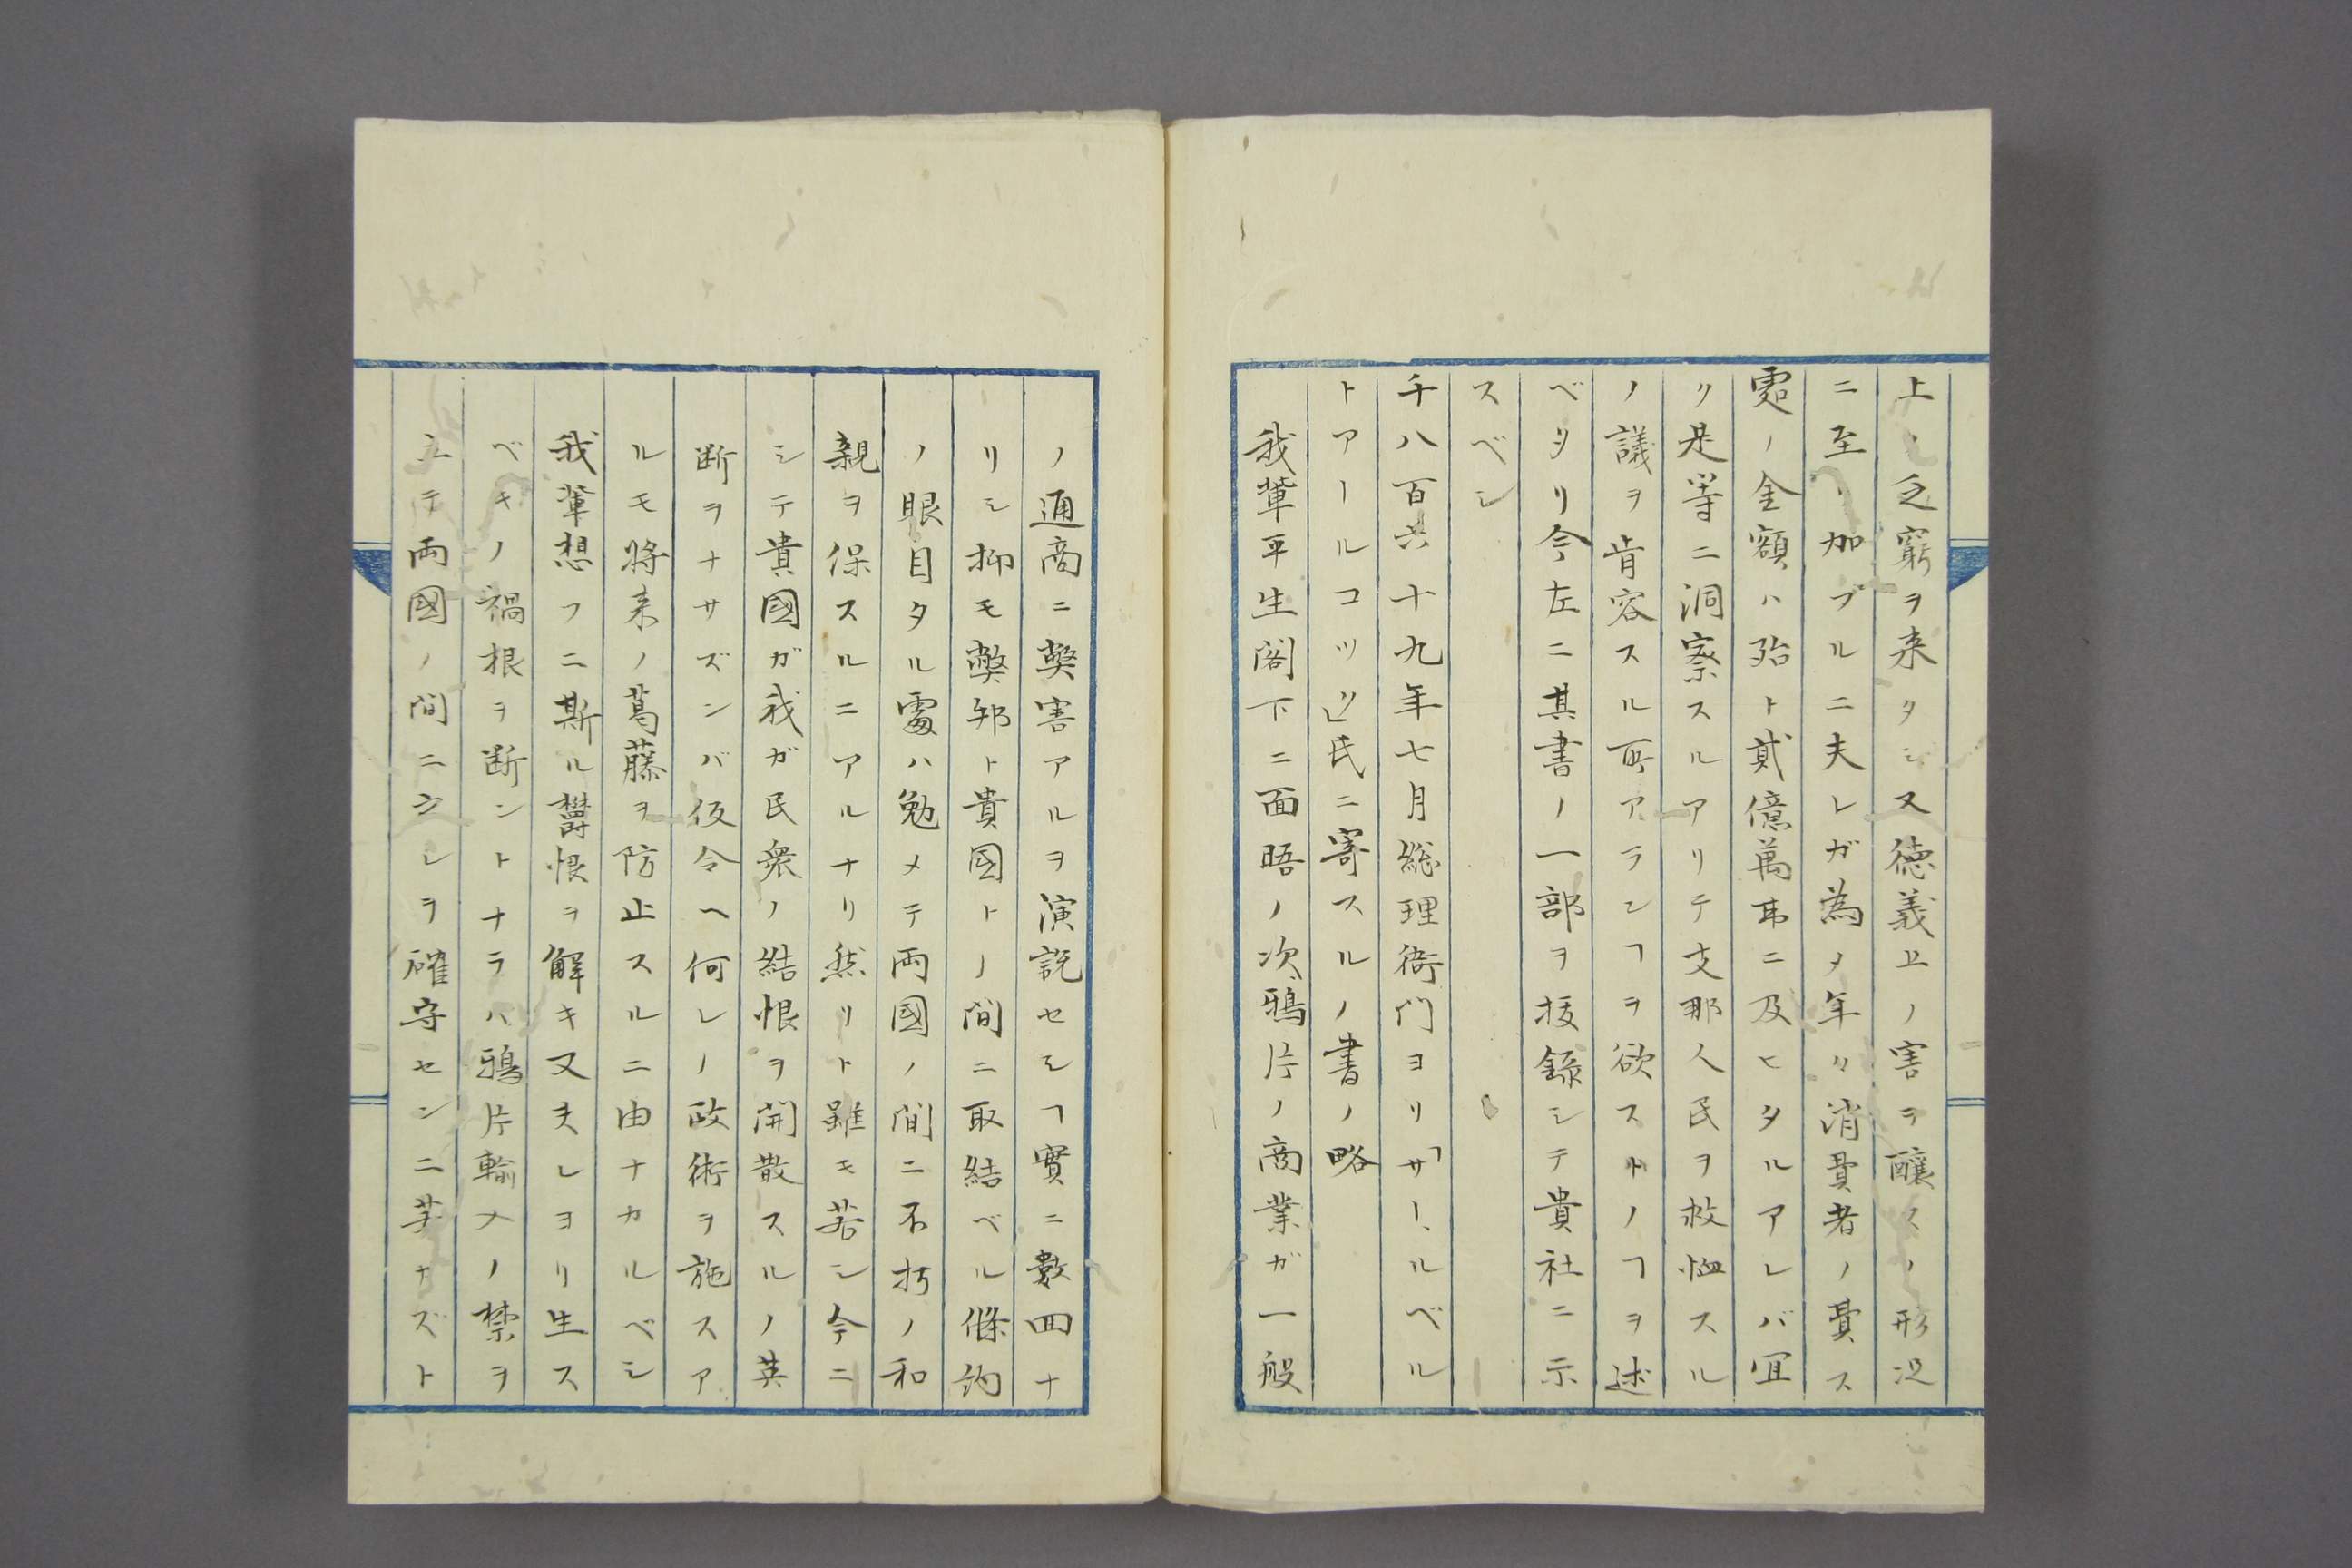 上ノ乏窮ヲ来タシ又徳義上ノ害ヲ醸スノ形况
ニ至ル加フルニ夫レガ為メ年々消費者ノ費ス
處ノ金額ハ殆ト貳億萬弗ニ及ヒタルアレバ冝
リ是等ニ洞察スルアリテ支那人民ヲ救恤スル
ノ議ヲ肯容スル所アランヿヲ欲ス㪽ノヿヲ述
ベタリ今左ニ其書ノ一部ヲ抜録シテ貴社ニ示
スベシ
千八百六十九年七月総理衙門ヨリ「サー、ルベル
トアールコツリ」氏ニ寄スルノ書ノ略
我輩平生閣下ニ面晤ノ次鴉片ノ商業ガ一般
ノ通商ニ弊害アルヲ演説セシヿ實ニ數回ナ
リシ抑モ弊邦ト貴國トノ間ニ取結ベル條約
ノ眼目タル處ハ勉メテ両國ノ間ニ不朽ノ和
親ヲ保スルニアルナリ然リト雖モ若シ今ニ
シテ貴國ガ我ガ民衆ノ結恨ヲ開散スルノ英
断ヲナサズンバ仮令ヘ何レノ政術ヲ施スア
ルモ将来ノ葛藤ヲ防止スルニ由ナカルベシ
我輩想フニ斯ル欝恨ヲ解キ又夫レヨリ生ス
ベキノ禍根ヲ断ントナラハ鴉片輸入ノ禁ヲ
立テ両國ノ間ニ之レヲ確守センニ若カズト